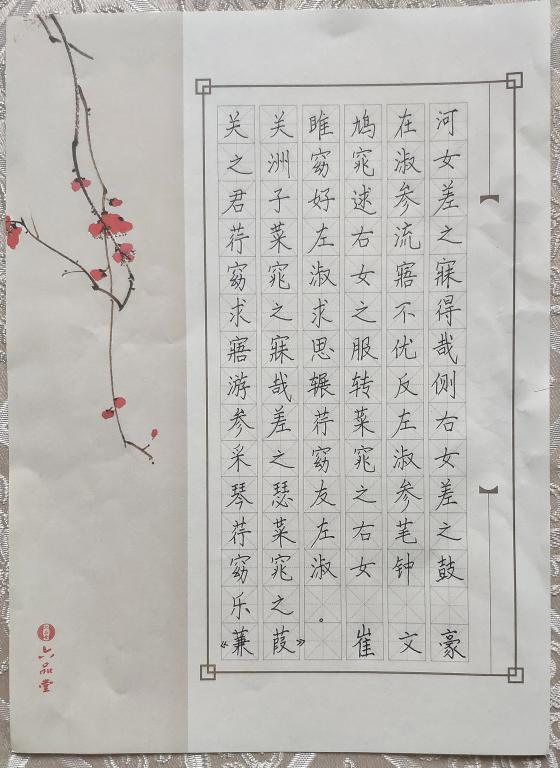 关关雎鸠在河
之洲窈窕淑女
君子好逑参差
荇菜左右流之
窈窕淑女寤寐
求之求之不得
寤寐思服优哉
游哉辗转反侧
参差荇菜左右
采之窈窕淑女
琴瑟友之参差
荇菜左右芼之
窈窕淑女钟鼓
乐之。
《蒹葭》崔文豪
六品堂